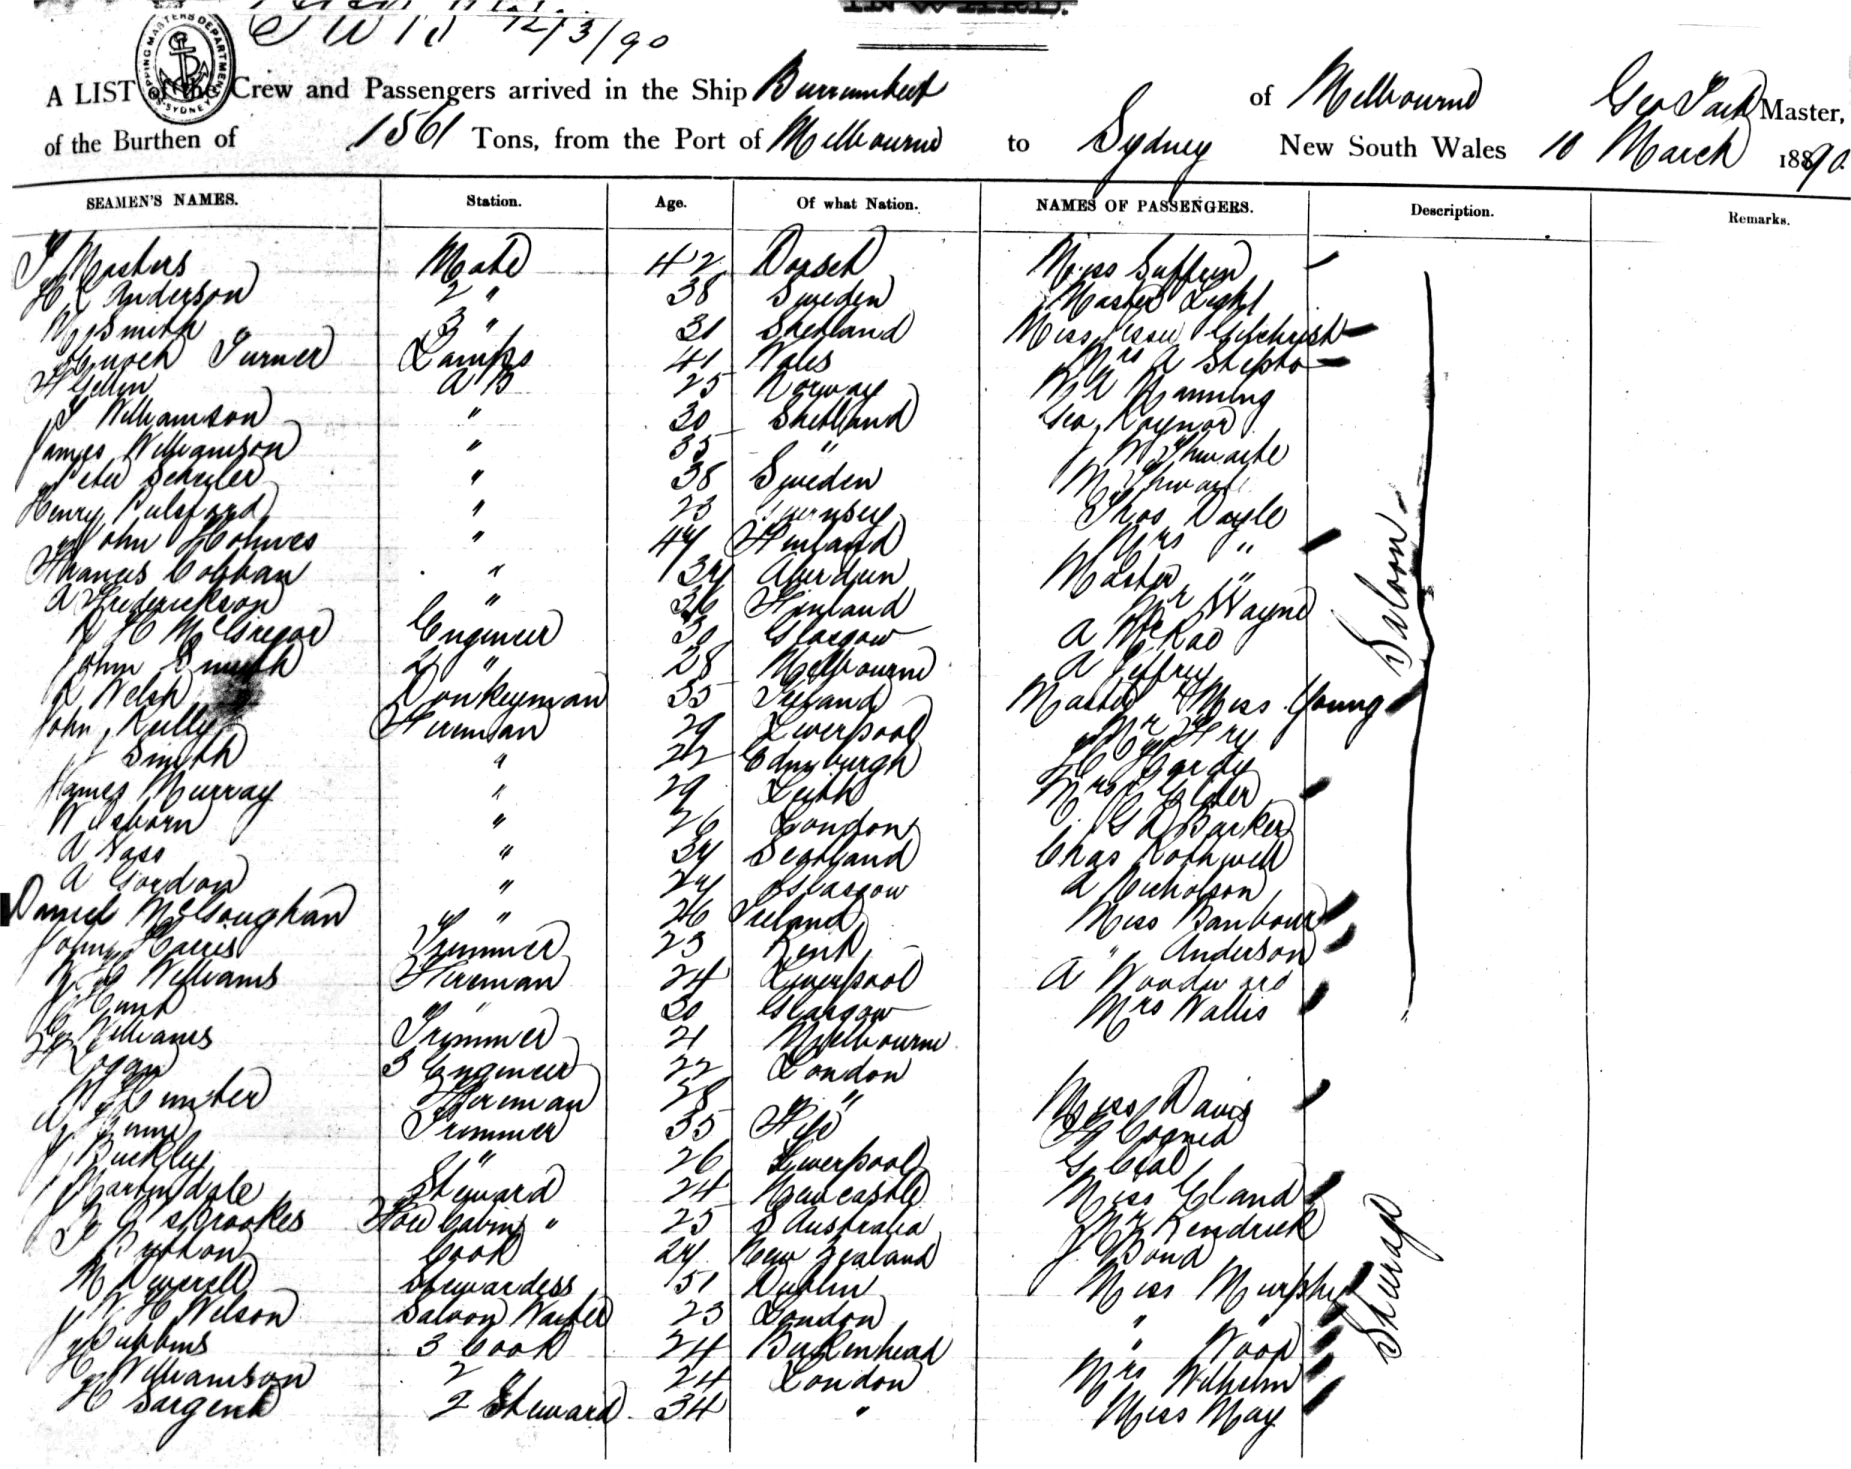 12/3/90
SHIPPING MASTERS DEPARTMENT SYDNEY
A LIST of the Crew and Passengers arrived in the Ship Burrumbeet of Melbourne Geo Master,
of the Burthen of 1561 Tons, from the Port of Melbourne to Sydney New South Wales 10 March 1890
SEAMEN'S NAMES. Station. Age. Of what Nation. NAMES OF PASSENGERS. Description. Remarks.
Masters Mate 42 Dorset Miss
Anderson 2 " 38 Sweden Master Light
Smith 3 " 31 Shetland Miss Gilchrist
Enoch Turner Lamps 41 Wales Mrs A
A B 25 Norway Manning
Williamson " 30 Shetland Geo Raynor
James Williamson " 35 " Thwaite
Peter " 38 Sweden
Henry Pulsford " 23 Guernsey Thos Doyle
John Holmes " 44 Finland Mrs "
Francis Cobban " 34 Aberdeen Master "
A Frederickson " 36 Finland Mr Wayne
McGregor Engineer 30 Glasgow A McRae
John Smith 2 " 28 Melbourne A Jeffrey
Welsh Donkeyman 35 Ireland Master & Miss Young
John Kelly Fireman 29 Liverpool Mr Fry
J Smith " 22 Edinburgh Hardy
James Murray " 29 Leith Mrs Elder
W Osborn " 26 London G A Barker
A Nass " 34 Scotland Chas Rothwell
A Gordon " 24 Glasgow Nicholson
Daniel " 26 Ireland Miss
John Harris Trimmer 23 Kent " Anderson
Williams Fireman 24 Liverpool A Woodward
Hunt " 30 Glasgow Mrs Wallis
Williams Trimmer 21 Melbourne
Logan 3 Engineer 22 London
Saloon
W Hunter Fireman 28 " Miss Davis
Trimmer 35 Fife
J Buckley " 26 Liverpool G
J Martindale Steward 24 Newcastle Miss Eland
Brookes Fore Cabin " 25 S Australia Mr Kendrick
Cook 24 New Zealand J Bond
M Deverell Stewardess 51 Dublin Miss Murphy
W H Wilson Saloon Waiter 23 London "
J Gubbins 3 Cook 24 Birkenhead " Wood
Williamson 2 " 24 London Mrs Wilhelm
H Sargent 2 Steward 34 " Miss May
Steerage